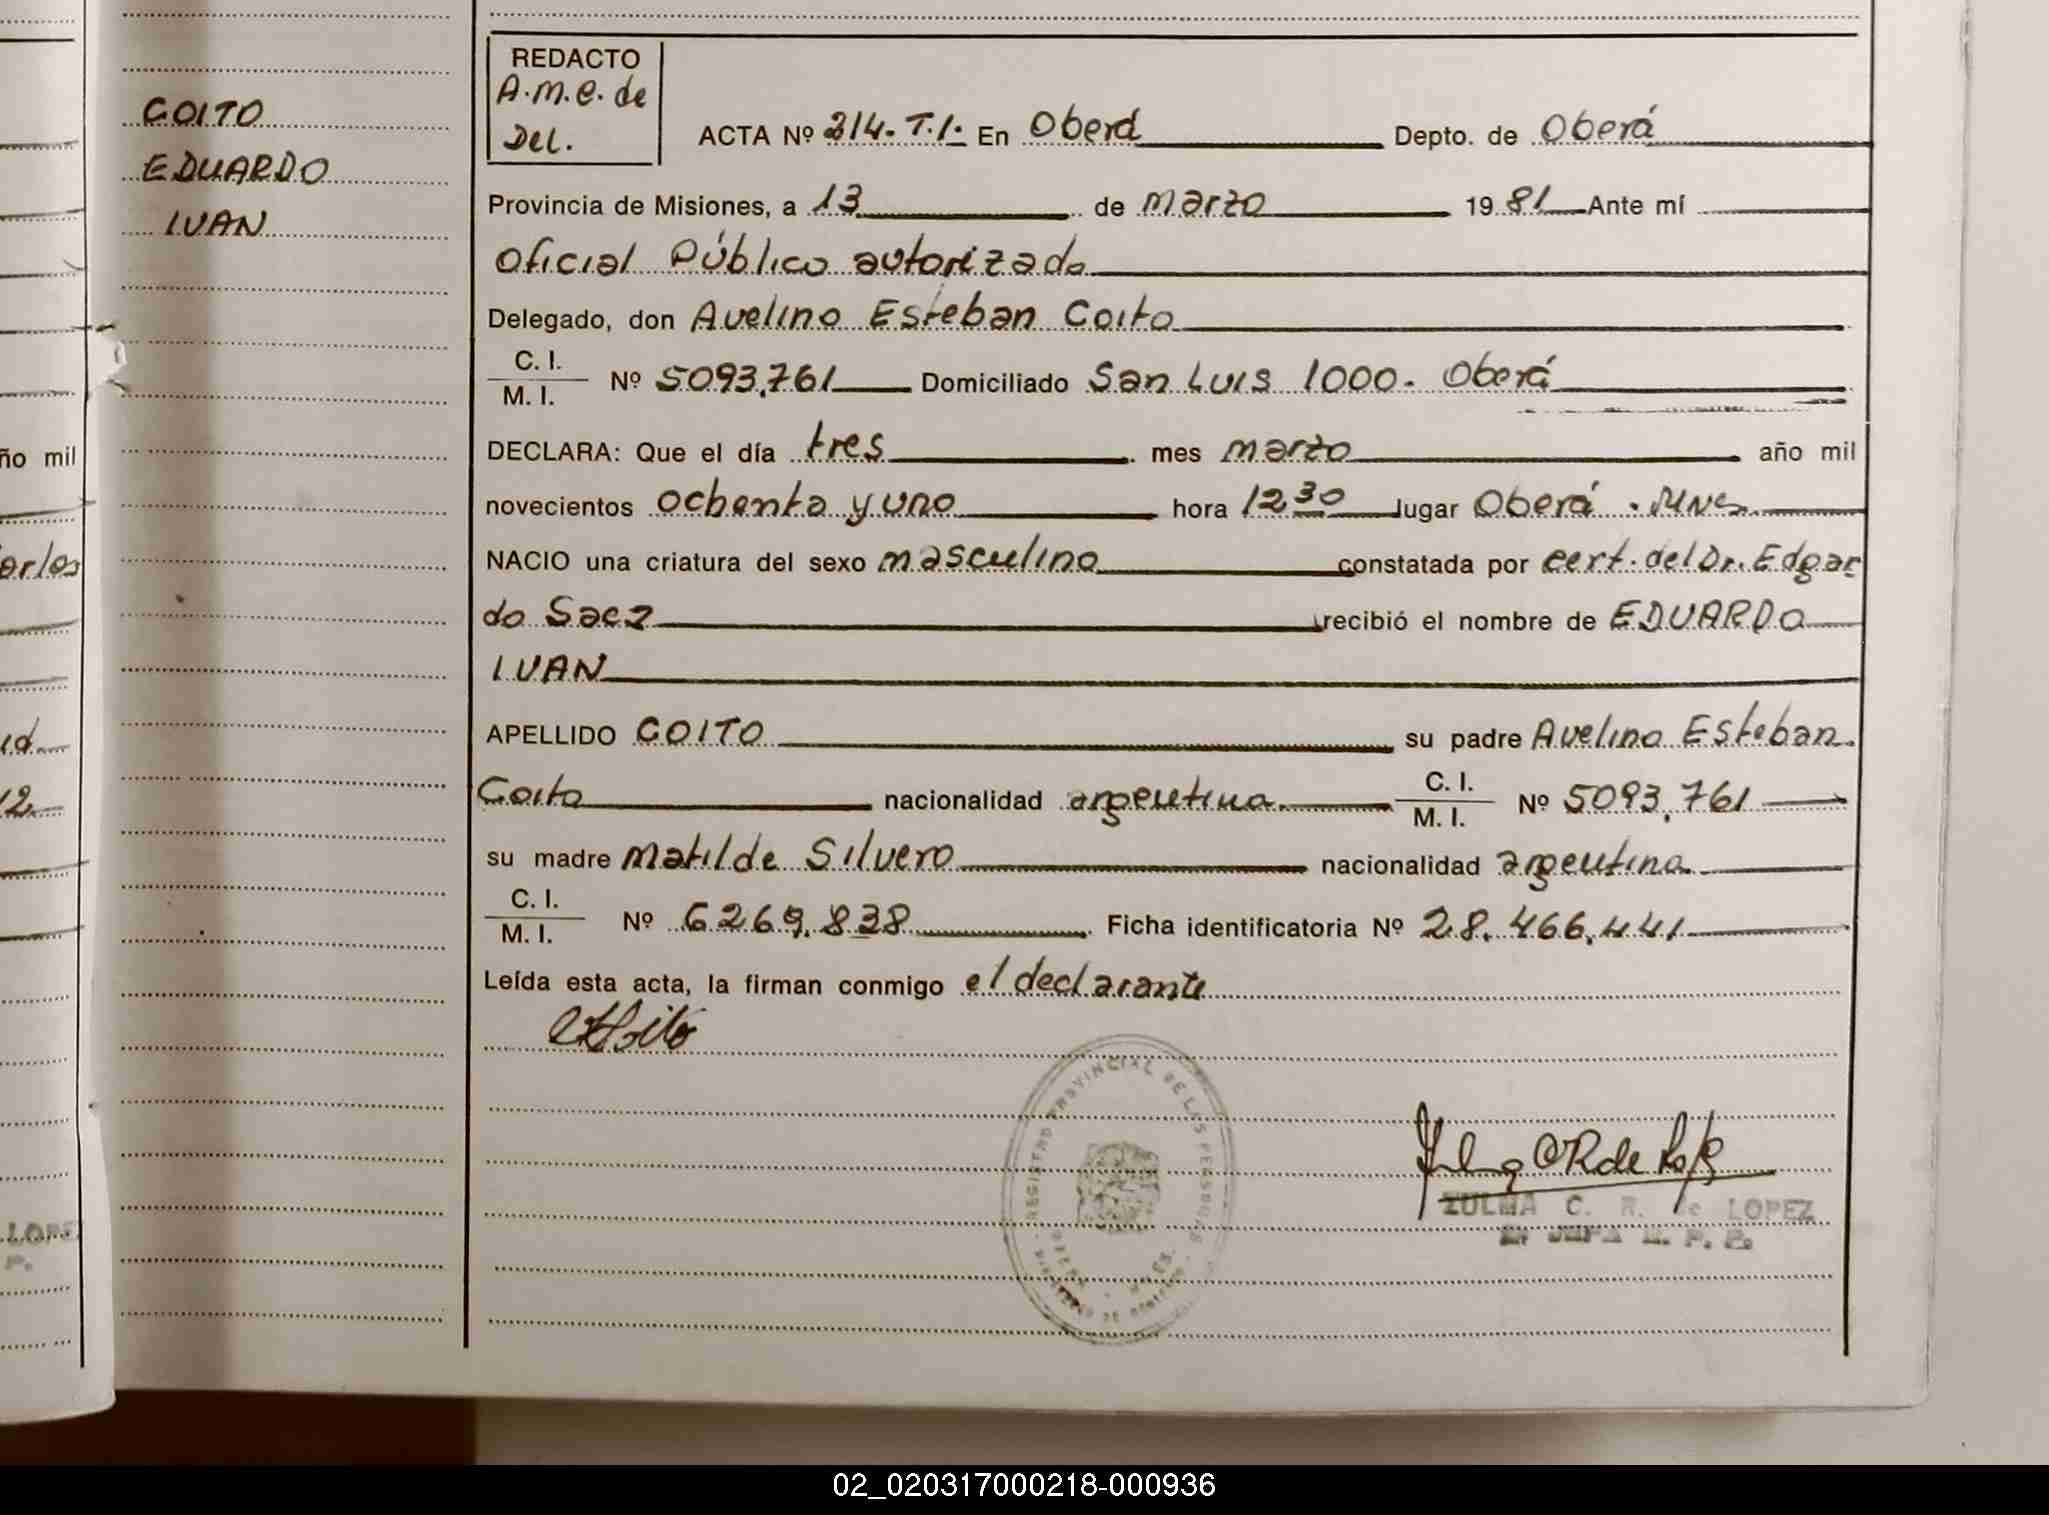 COITO
EDUARDO
IVAN
REDACTO
A.M.C. de
Del.
ACTA Nº 214. T.I. En Oberá Depto. de Oberá
Provincia de Misiones, a 13 de marzo 1981 Ante mí
Oficial Público autorizado
Delegado, don Avelino Esteban Coito
C. I.
M. I. Nº 5093.761 Domiciliado San Luis 1000. Oberá
DECLARA: Que el día tres mes marzo año mil
novecientos ochenta y uno hora 12 30 lugar Oberá. Mnes.
NACIO una criatura del sexo masculino constatada por cert. del Dr. Edgar
do Saez recibió el nombre de EDUARDO
IVAN
APELLIDO COITO su padre Avelino Esteban
Coito nacionalidad argentina C. I.
M. I. Nº 5093.761
su madre Matilde Silvero nacionalidad argentina
C. I.
M. I. Nº 6269.838 Ficha identificatoria Nº 28.466.441
Leída esta acta, la firman conmigo el declarante
REGISTRO PROVINCIAL DE LAS PERSONAS
ZULMA C. R. de LOPEZ
ño mil
arlos
12
LOPEZ
P.
02_020317000218-000936